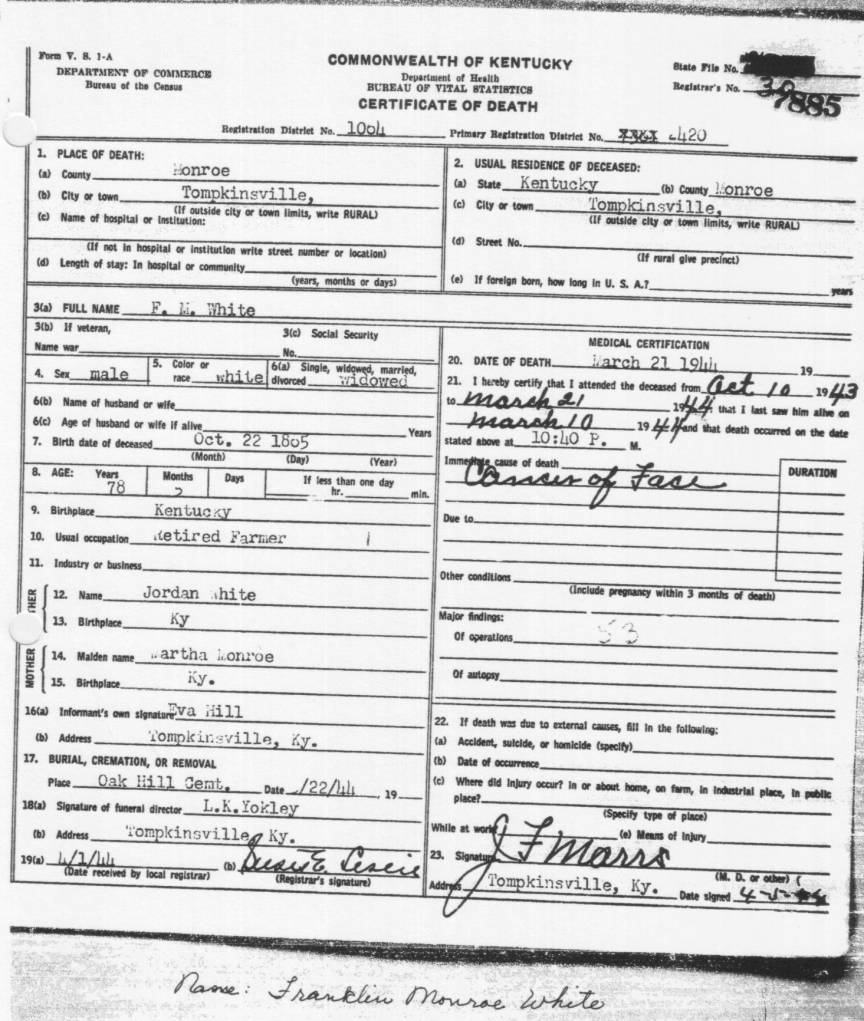 Form V. S. 1-A
DEPARTMENT OF COMMERCE
Bureau of the Census
COMMONWEALTH OF KENTUCKY
Department of Health
BUREAU OF VITAL STATISTICS
CERTIFICATE OF DEATH
State File No.
Registrar's No. 30
7885
Registration District No. 1004 Primary Registration District No. 2420
1. PLACE OF DEATH:
(a) County Monroe
(b) City or town Tompkinsville,
(If outside city or town limits, write RURAL)
(c) Name of hospital or institution:
(If not in hospital or institution write street number or location)
(d) Length of stay: In hospital or community
(years, months or days)
2. USUAL RESIDENCE OF DECEASED:
(a) State Kentucky (b) County Monroe
(c) City or town Tompkinsville,
(If outside city or town limits, write RURAL)
(d) Street No.
(If rural give precinct)
(e) If foreign born, how long in U. S. A.? years
3(a) FULL NAME F. M. White
3(b) If veteran,
Name war
3(c) Social Security
No.
4. Sex male
5. Color or
race white
6(a) Single, widowed, married,
divorced widowed
6(b) Name of husband or wife
6(c) Age of husband or wife if alive Years
7. Birth date of deceased Oct. 22 1865
(Month) (Day) (Year)
8. AGE: Years Months Days If less than one day
78 hr. min.
9. Birthplace Kentucky
10. Usual occupation Retired Farmer
11. Industry or business
12. Name Jordan White
13. Birthplace Ky
MOTHER
14. Maiden name Martha Monroe
15. Birthplace Ky.
16(a) Informant's own signature Eva Hill
(b) Address Tompkinsville, Ky.
17. BURIAL, CREMATION, OR REMOVAL
Place Oak Hill Cemt. Date /22/44 19
18(a) Signature of funeral director L.K.Yokley
(b) Address Tompkinsville, Ky.
19(a) 4/1/44 (b) Susie E.
(Date received by local registrar) (Registrar's signature)
MEDICAL CERTIFICATION
20. DATE OF DEATH March 21 1944 19
21. I hereby certify that I attended the deceased from Oct 10 1943
to March 21 1944; that I last saw him alive on
March 10 1944 and that death occurred on the date
stated above at 10:40 P. M.
Immediate cause of death
Cancer of Face
DURATION
Due to
Other conditions
(Include pregnancy within 3 months of death)
Major findings:
Of operations 53
Of autopsy
22. If death was due to external causes, fill in the following:
(a) Accident, suicide, or homicide (specify)
(b) Date of occurrence
(c) Where did injury occur? In or about home, on farm, in industrial place, in public
place?
(Specify type of place)
While at work (e) Means of injury
23. Signature J F Marrs
(M. D. or other)
Address Tompkinsville, Ky. Date signed 4-5-44
Name: Franklin Monroe White